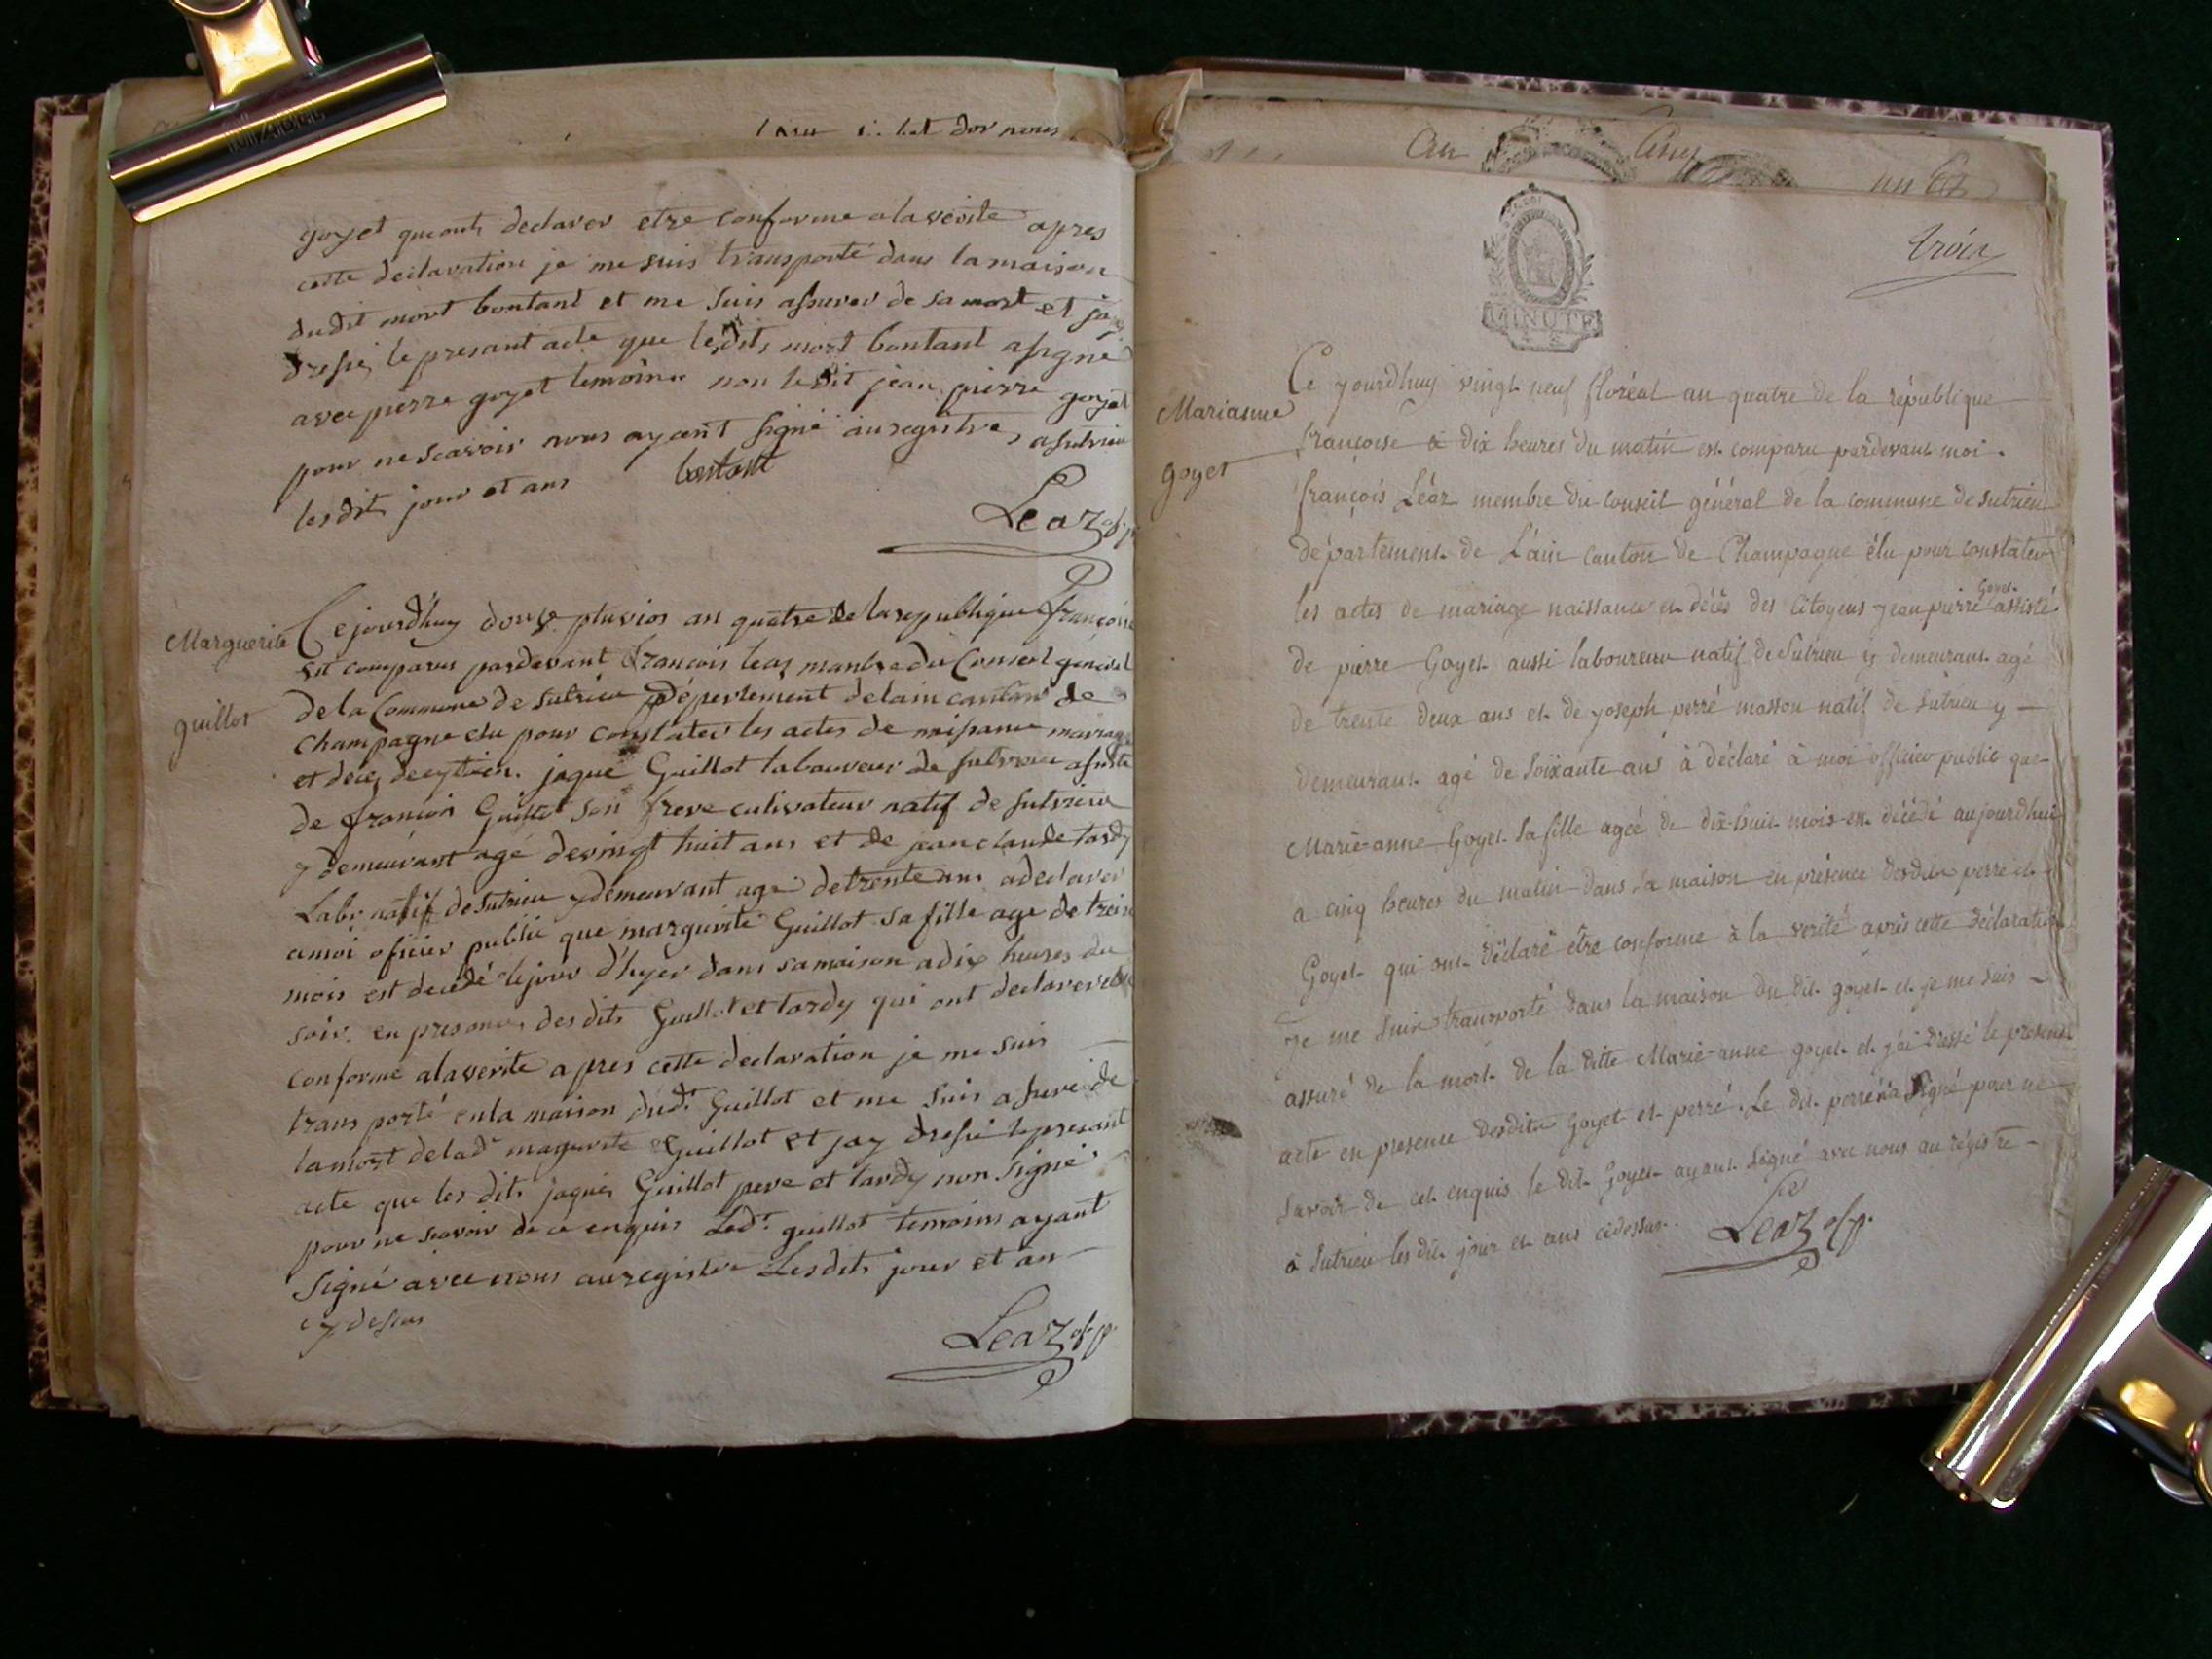 goyet qui onts declarer etre conforme a la verite apres
cette declaration je me suis transporté dans la maison
dudit mort bontant et me suis assurer de sa mort et jay
dressé le presant acte que lesdits mort bontant a signe
avec pierre goyet temoine non le dit jean pierre goyet
pour ne scavoir nous ayant signé au registre, a sutrieu
lesdits jour et ans
bontant
Leaz of. p
Marguerite
guillot
Cejourd'huy douze pluvios an quatre de la republique françoise
est comparus pardevant françois leaz manbre du Conseil general
de la Commune de sutrieu département de lain canton de
champagne elu pour constater les actes de naissance mariage
et deces de cytoien. jaque Guillot laboureur de sutrieu assiste
de françois Guillot son frere cultivateur natif de sutrieu
y demeurant agé de vingt huit ans et de jean claude tardy
Labr natif de sutrieu y demeurant age de trente ans a declarer
a moi oficier public que margurite Guillot sa fille age de treize
mois est decedé le jour d'hyer dans sa maison a dix heures du
soir. en presance des dits Guillot et tardy qui ont declarer etre
conforme a la verite apres cette declaration je me suis
transporté en la maison dudt Guillot et me suis assuré de
la mort de lade margurite Guillot et jay dressé le presant
acte que les dits jaques Guillot pere et tardy non signé
pour ne scavoir de ce enquis Ledt guillot temoins ayant
signé avec nous au registre Lesdits jour et an
cy dessus
Leaz of. p.
an cinq
un
trois
MINUTE
Marianne
goyet
Ce yourdhuy vingt neuf floréal an quatre de la république
françoise à dix heures du matin est comparu pardevant moi
françois Léaz membre du conseil général de la commune de sutrieu
département de L'ain canton de Champagne élu pour constater
les actes de mariage naissance et décès des Citoyens jean pierre Goyet assisté
de pierre Goyet aussi laboureur natif de Sutrieu y demeurant agé
de trente deux ans et de yoseph perré masson natif de sutrieu y
demeurant agé de soixante ans à déclaré à moi officier public que
Marie-anne Goyet sa fille ageé de dix-huit mois est décédé aujourdhui
a cinq heures du matin dans sa maison en présence desdits perré et
Goyet qui ont déclaré être conforme à la verité après cette déclaration
je me suis transporté dans la maison du dit goyet et je me suis
assuré de la mort de la ditte Marie-anne goyet et j'ai dressé le present
acte en presence desdits Goyet et perré. Le dit perré n'a signé pour ne
savoir de cet enquis le dit Goyet ayant signé avec nous au régistre
à sutrieu les dits jour et ans cidessus.
Leaz of p.